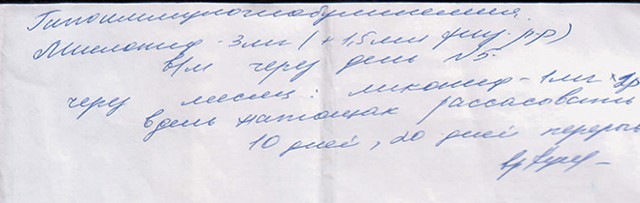 Гипоиммуноглобулинемия
Миелопид - 3 мг (+ 1,5 мл физ. р-р)
в/м через день N5.
через месяц: ликопид - 1 мг × 2р
в день натощак рассасывать
10 дней, 20 дней перерыв
вр.